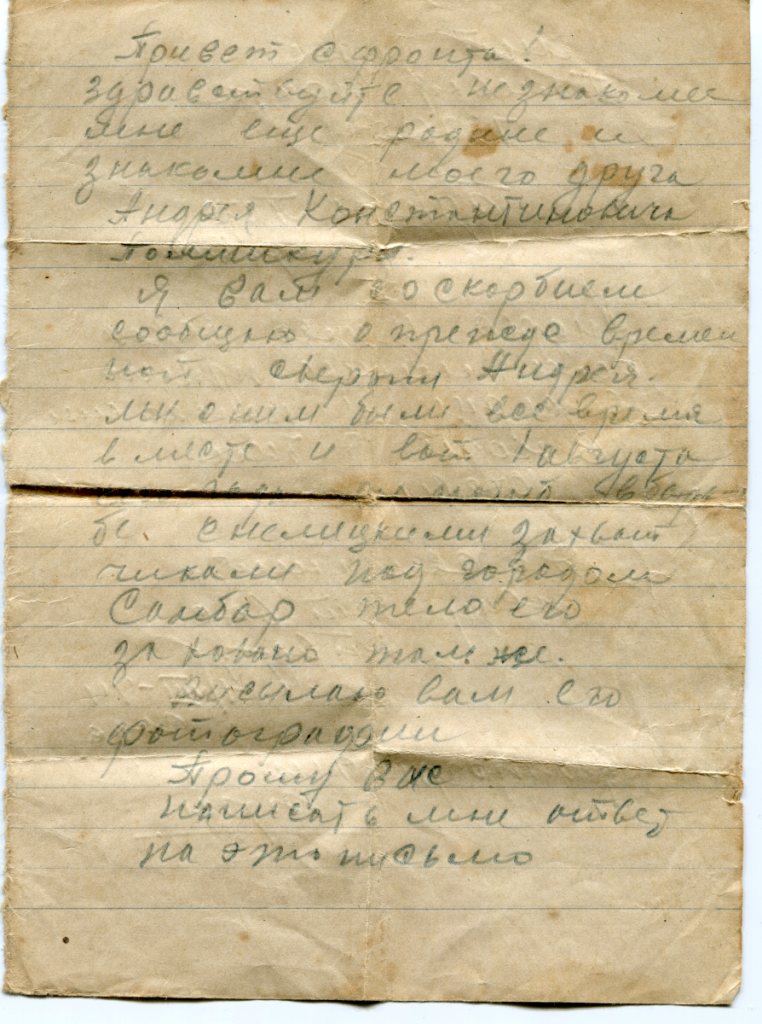 Привет с фронта!
здравствуйте незнакомие
мне еще родние и
знакомие моего друга
Андрея Константиновича

Я вам со скорбием
сообщаю о прежде времен
ной смерти Андрея.
мы с ним были все время
вместе и вот 1 августа

бе с немецкими захват
чиками под городом
Самбор тело его
заховано там же.
посылаю вам его
фотографии
Прошу вас
написать мне ответ
на это письмо